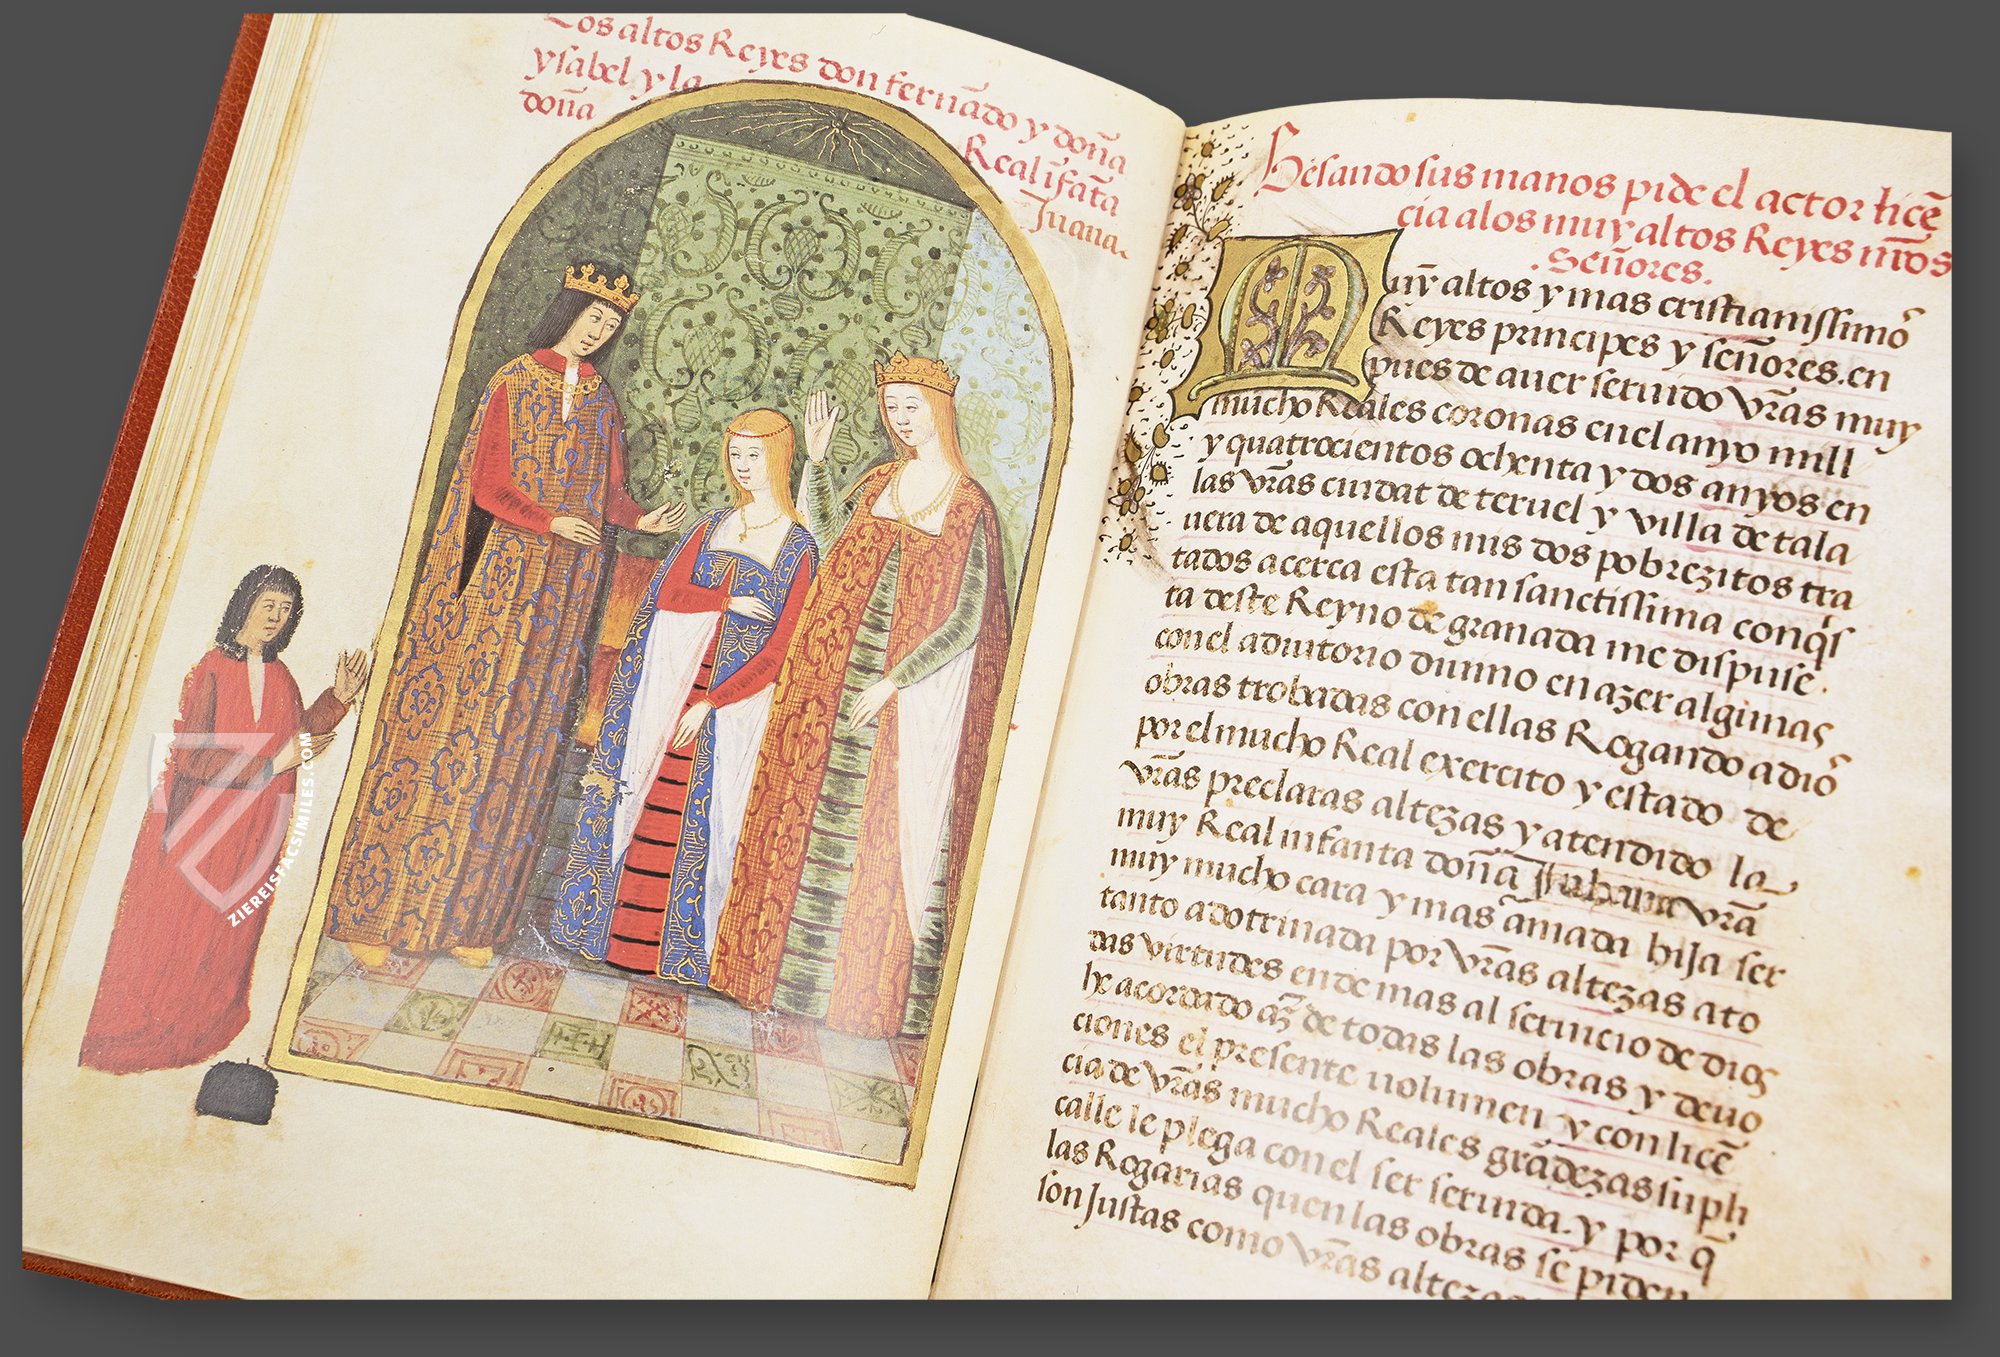 Los altos Reyes don fernãdo y doña
ysabel y la
doña
Real ĩfãta
Juana.
Besando sus manos pide el actor licẽ
cia a los muy altos Reyes nr̃os
.Señores.
Muy altos y mas cristianissimõ
Reyes principes y señores. en
pues de auer seruido vr̃as muy
mucho Reales coronas en el anyo mill
y quatrocientos ochenta y dos anyos en
las vr̃as ciudat de teruel y villa de tala
uera de aquellos mis dos pobrezitos tra
tados acerca esta tan sanctissima conq̃s
ta deste Reyno de granada me dispuse.
con el adiutorio diuino en azer algunas
obras trobadas con ellas Rogando a diõ
por el mucho Real exercito y estado de
vr̃as preclaras altezas y atendido la
muy Real infanta doña Juhana vr̃a
muy mucho cara y mas amada hija ser
tanto adotrinada por vr̃as altezas a to
das virtudes ende mas al seruicio de dios
he acordado az̃ de todas las obras y deuo
ciones el presente uolumen y con licẽ
cia de vr̃as mucho Reales grãdezas suph
calle le plega con el ser seruida. y por q̃
las Rogarias quen las obras se piden
son Justas como vr̃as altezas
ZIEREISFACSIMILES.COM